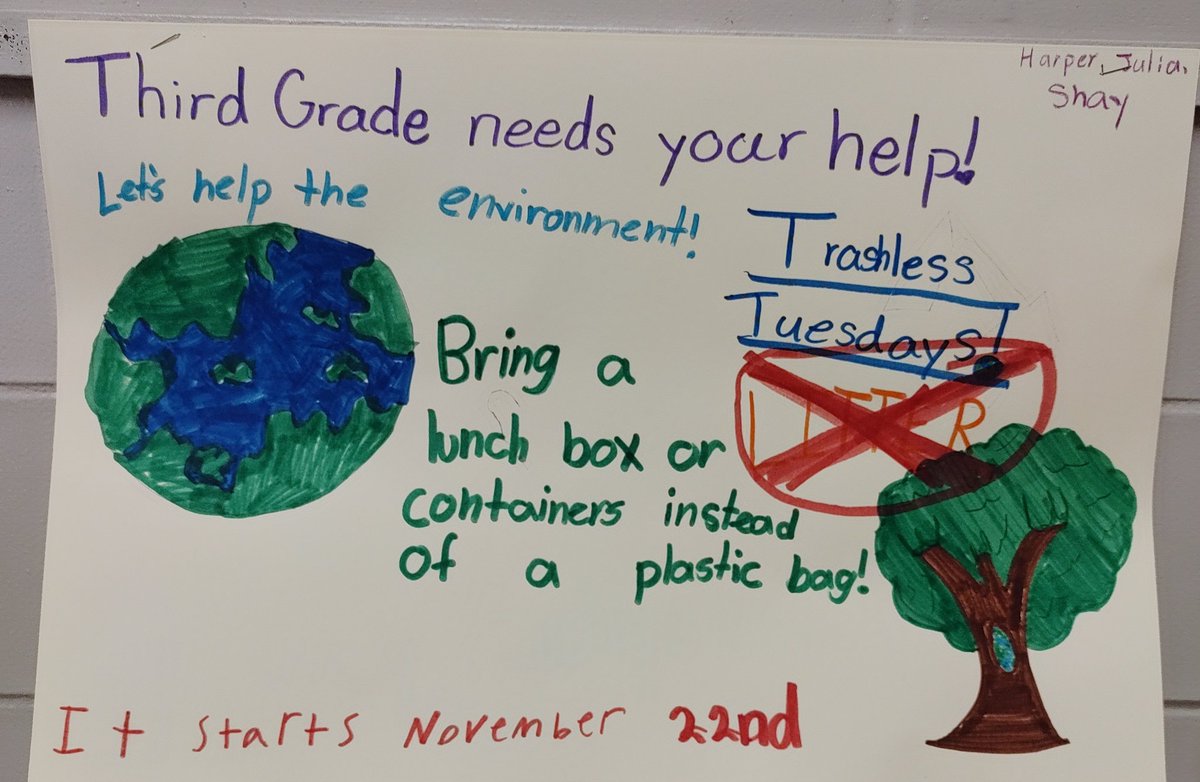 Harper, Julia,
Shay
Third Grade needs your help!
Let's help the environment!
Trashless
Tuesdays!
LITTER
Bring a
lunch box or
containers instead
of a plastic bag!
It starts November 22nd